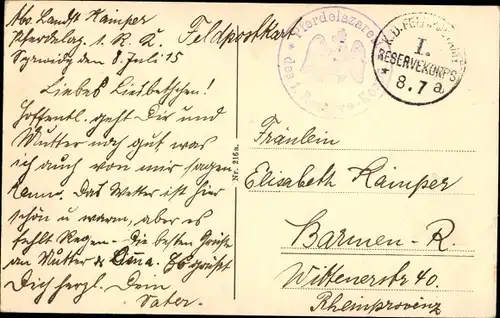 Abs. Landst. Kaimper
Pferdelaz. 1. R. K.
den 8. Juli 15
Feldpostkart
Liebes Lieschen!
Hoffentl. geht Dir und
Mutter noch gut was
ich auch von mir sagen
kann. Das Wetter ist hier
schön u warm, aber es
fehlt Regen – Die besten Grüße
an Mutter & Lina. Es grüßt
Dich herzl. Dein
Vater.
Nr. 216a.
Pferdelazarett
des I. Reserve-Korps
K.D. FELDPOST
I.
RESERVEKORPS
8.7 a.
Fräulein
Elisabeth Kaimper
Barmen-R.
Wittenerstr. 40.
Rheinprovinz